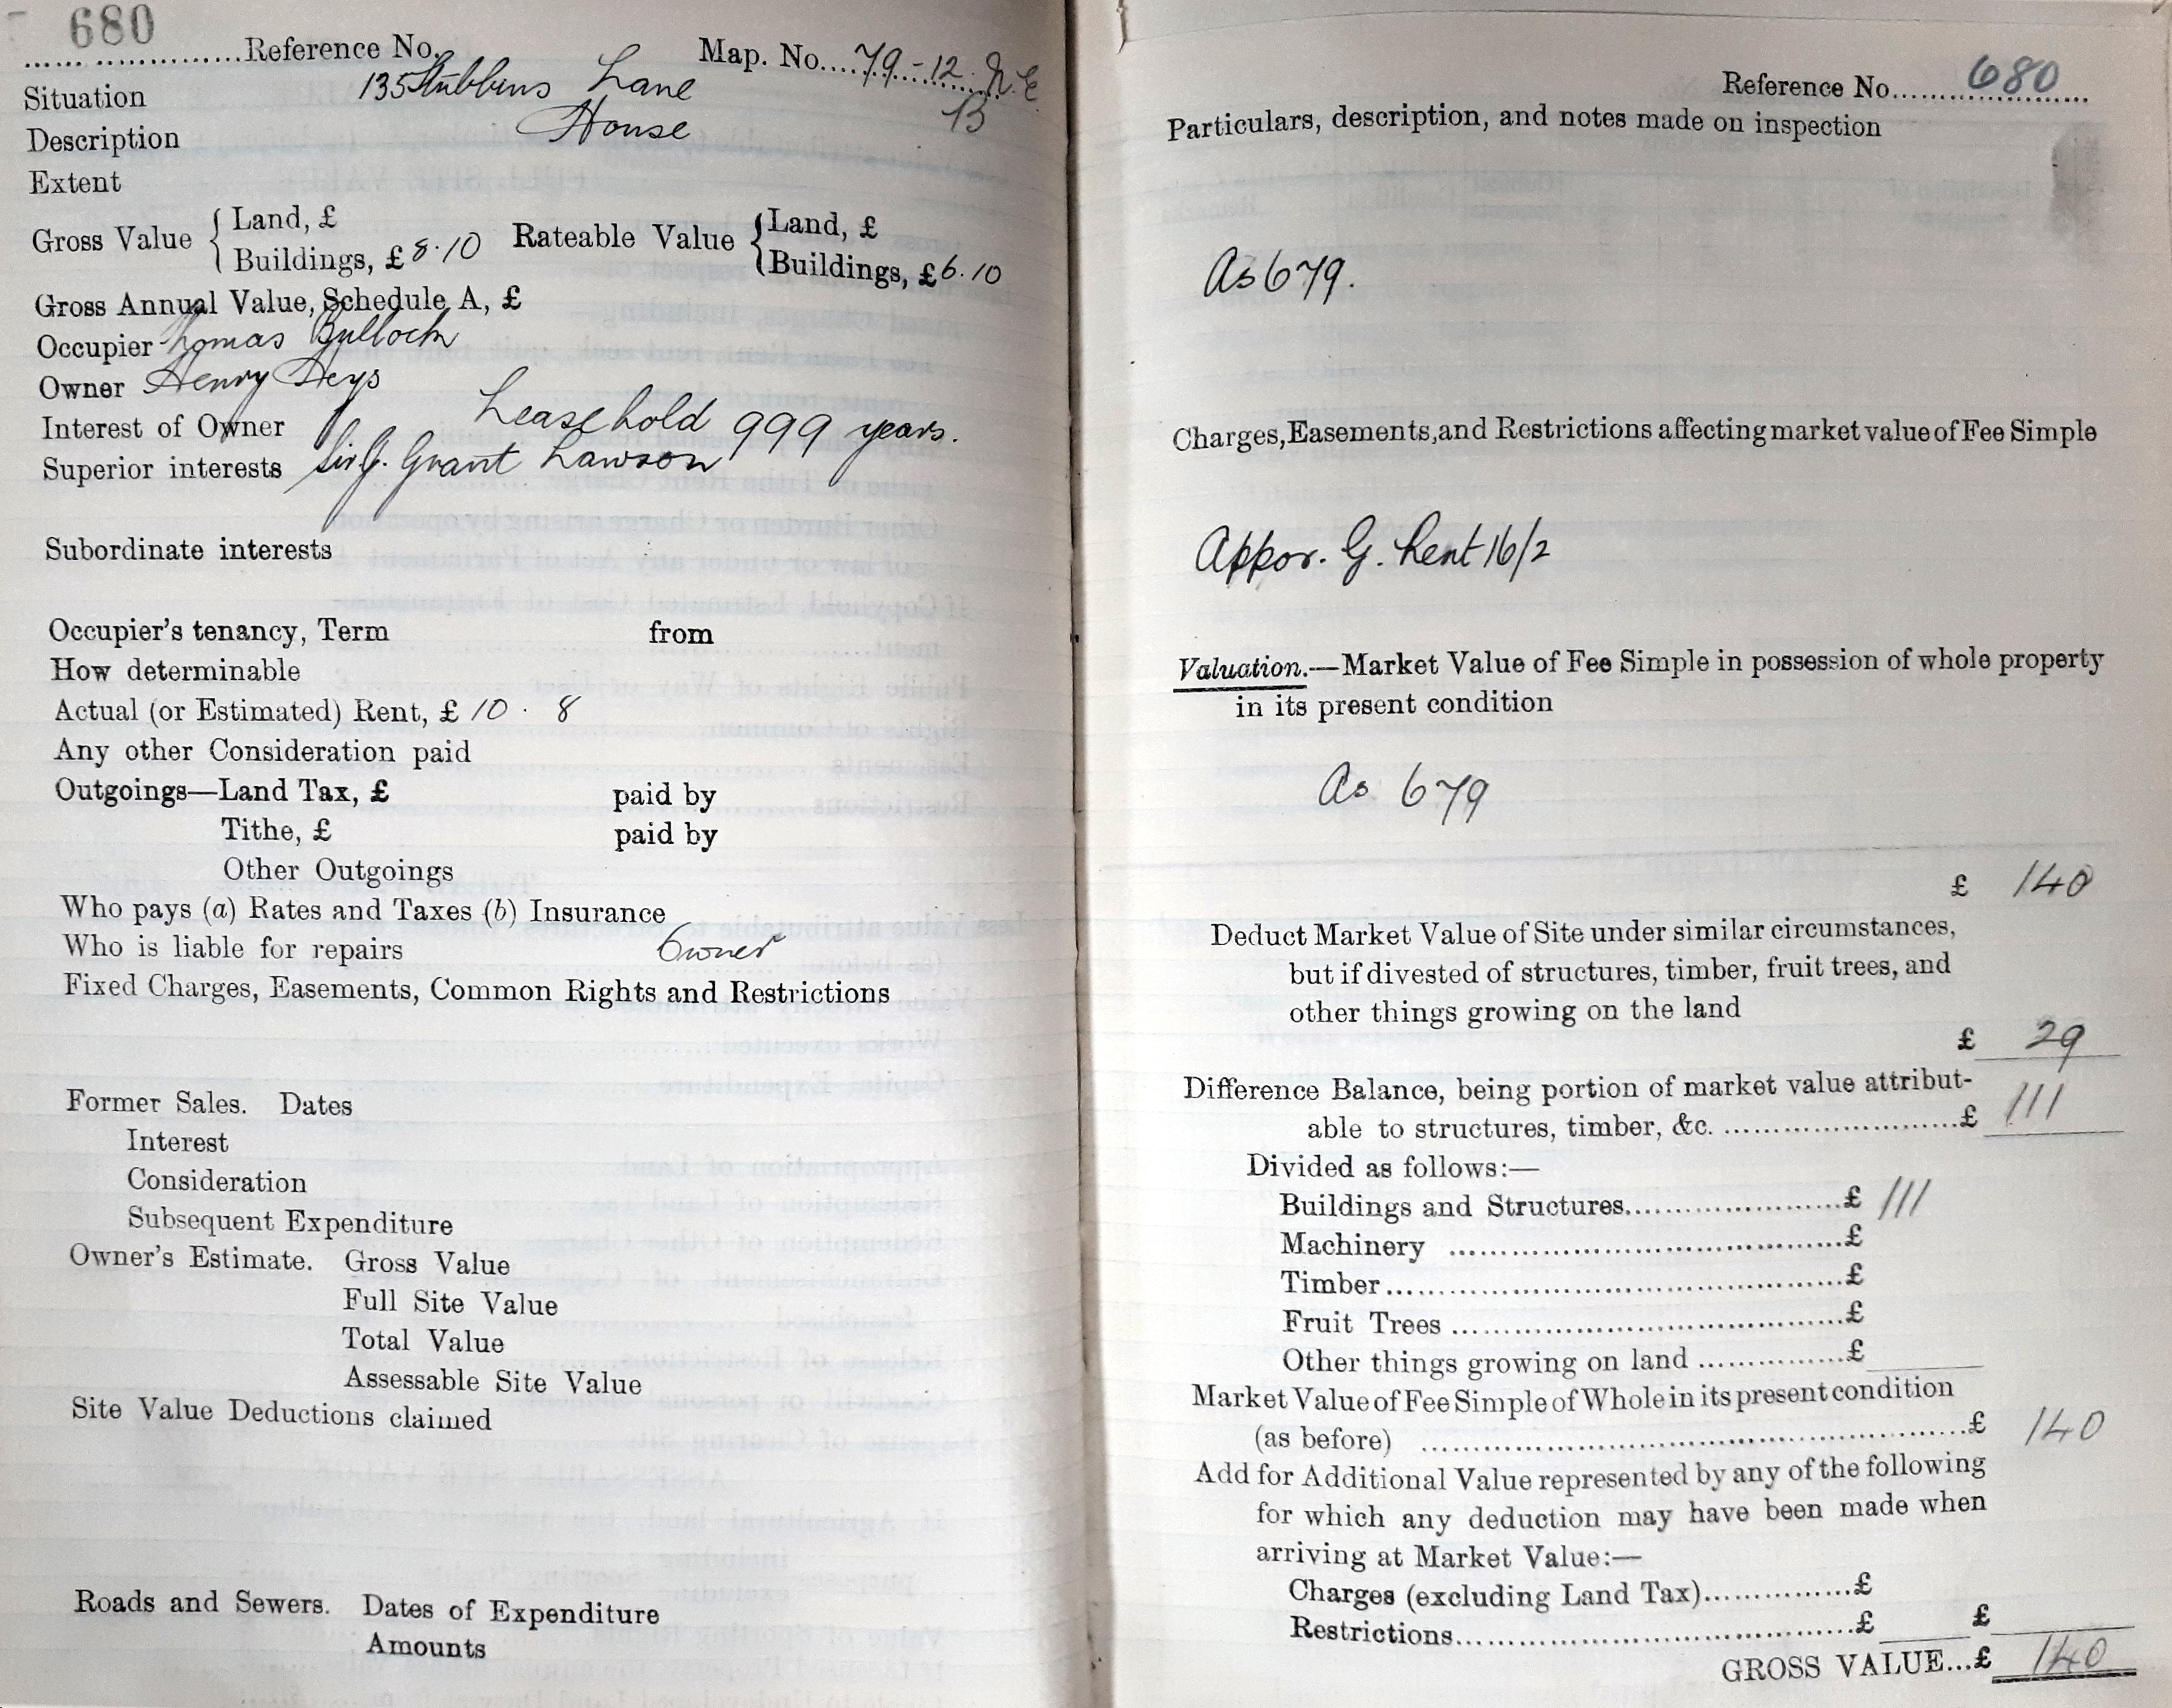 680
Reference No. Map. No. 79-12 N.E.
13
Situation 135 Stubbins Lane
Description House
Extent
Gross Value { Land, £ Rateable Value { Land, £
Buildings, £ 8.10 Buildings, £ 6.10
Gross Annual Value, Schedule A, £
Occupier Thomas Bulloch
Owner Henry Heys
Interest of Owner Leasehold 999 years.
Superior interests Sir J. Grant Lawson
Subordinate interests
Occupier's tenancy, Term from
How determinable
Actual (or Estimated) Rent, £ 10 . 8
Any other Consideration paid
Outgoings—Land Tax, £ paid by
Tithe, £ paid by
Other Outgoings
Who pays (a) Rates and Taxes (b) Insurance
Who is liable for repairs Owner
Fixed Charges, Easements, Common Rights and Restrictions
Former Sales. Dates
Interest
Consideration
Subsequent Expenditure
Owner's Estimate. Gross Value
Full Site Value
Total Value
Assessable Site Value
Site Value Deductions claimed
Roads and Sewers. Dates of Expenditure
Amounts
Reference No. 680
Particulars, description, and notes made on inspection
As 679.
Charges, Easements, and Restrictions affecting market value of Fee Simple
Appor. G. Rent 16/2
Valuation.—Market Value of Fee Simple in possession of whole property
in its present condition
As 679
£ 140
Deduct Market Value of Site under similar circumstances,
but if divested of structures, timber, fruit trees, and
other things growing on the land
£ 29
Difference Balance, being portion of market value attribut-
able to structures, timber, &c. £ 111
Divided as follows:—
Buildings and Structures £ 111
Machinery £
Timber £
Fruit Trees £
Other things growing on land £
Market Value of Fee Simple of Whole in its present condition
(as before) £ 140
Add for Additional Value represented by any of the following
for which any deduction may have been made when
arriving at Market Value:—
Charges (excluding Land Tax) £
Restrictions £ £
GROSS VALUE...£ 140